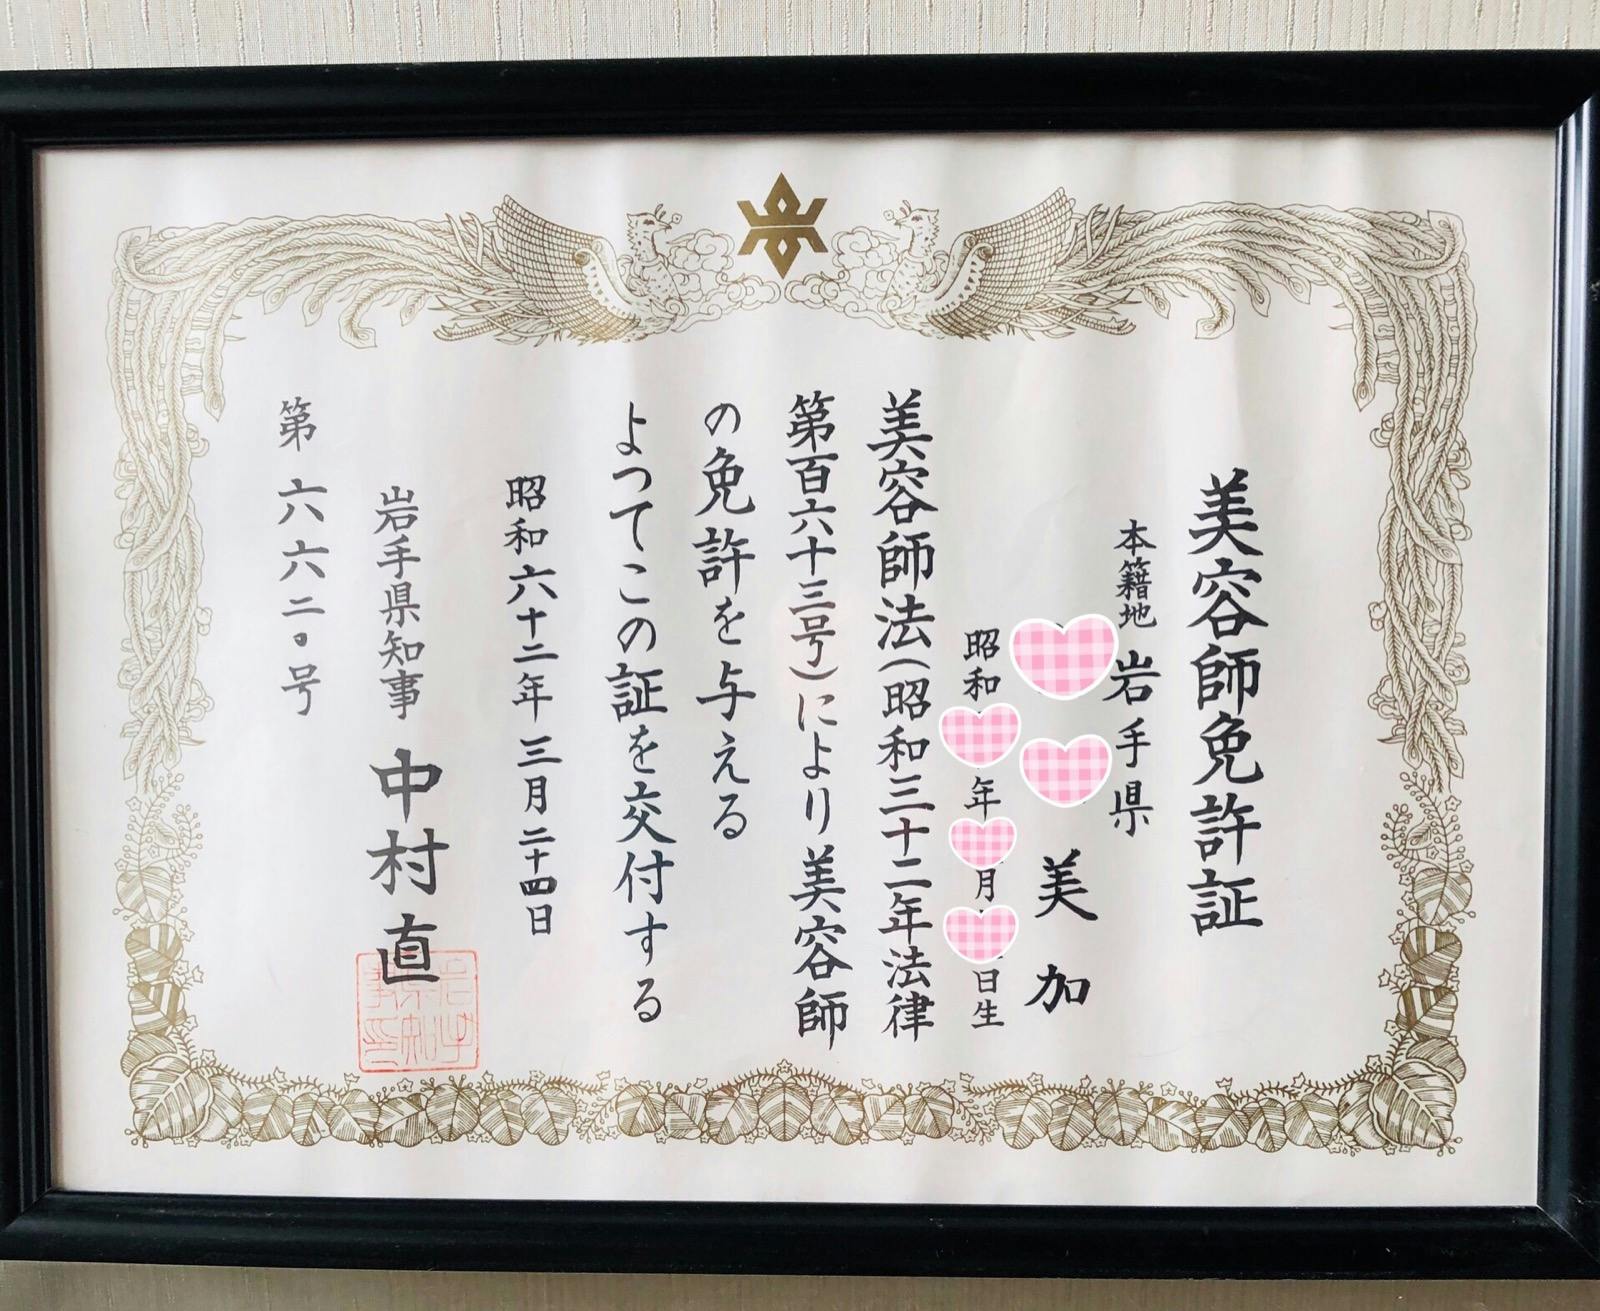 美容師免許証
本籍地 岩手県
美加
昭和 年 月 日生
美容師法(昭和三十二年法律
第百六十三号)により美容師
の免許を与える
よつてこの証を交付する
昭和六十二年三月二十四日
岩手県知事 中村直
岩手県知事之印
第六六二〇号